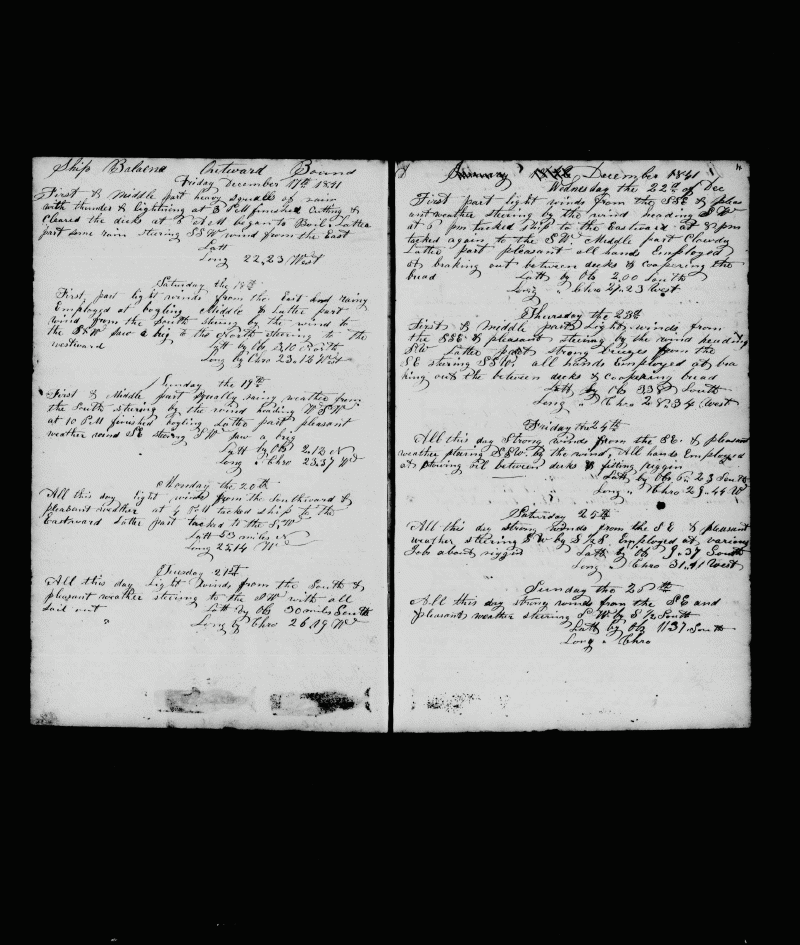 Ship Balaena Outward Bound
Friday December 17th 1841
First & middle part heavy squalls of rain
with thunder & lightning at 3 PM finished Cutting &
Cleared the decks at 6 PM began to Boil Latter
part some rain stering SSW wind from the East
Latt
Long 22,23 West
Saturday the 18th
First part light winds from the East and rainy
Employed at boyling Middle & Latter part
wind from the South stering by the wind to
the SSW saw a brig to the North steering to the
westward
Latt by Ob 3,10 North
Long by Chro 23.16 West
Sunday the 19th
First & Middle part squally rainy weather from
the South stering by the wind heading WSW
at 10 PM finished boyling Latter part pleasant
weather wind SE stering SW saw a brig
Latt by Ob 2.12 N
Long " Chro 23,37 W
Monday the 20th
All this day light winds from the Southward &
pleasant weather at 4 PM tacked ship to the
Eastward Latter part tacked to the SW
Latt 53 miles N
Long 25,14 W
Tuesday 21st
All this day light winds from the South &
pleasant weather stering to the SW with all
sail out
Latt by Ob 30 miles South
Long by Chro 26,19 W
December 1841
Wednesday the 22d of Dec
First part light winds from the SSE & pleas
ant weather stering by the wind heading SW
at 6 pm tacked ship to the Eastward at 8 pm
tacked again to the SW. Middle part Clowdy
Latter part pleasant all hands Employed
at braking out between decks & coopering the
bread
Latt by Ob 2,00 South
Long " Chro 27.23 West
Thursday the 23d
First & middle parts Lights winds from
the SSE & pleasant stering by the wind heading
SW Latter part strong Breezes from the
SE stering SSW. all hands Employed at bra
king out the between decks & coopering bread
Latt by Ob 3 38 South
Long " Chro 28 34 West
Friday the 24th
All this day Strong winds from the SE. & pleasant
weather stering SSW. by the wind, All hands Employed
at stowing oil between decks & fitting riggin
Latt by Ob 6,23 South
Long " Chro 29.44 W
Saturday 25th
All this day strong winds from the SE & pleasant
weather steering SW by S 1/2 S. Employed at various
Jobs about riggin
Latt by Ob 9.37 South
Long " Chro 31.41 West
Sunday the 26th
All this day strong winds from the SE and
Pleasant weather steering SW by S 1/2 South
Latt by Ob 11 37 South
Long " Chro